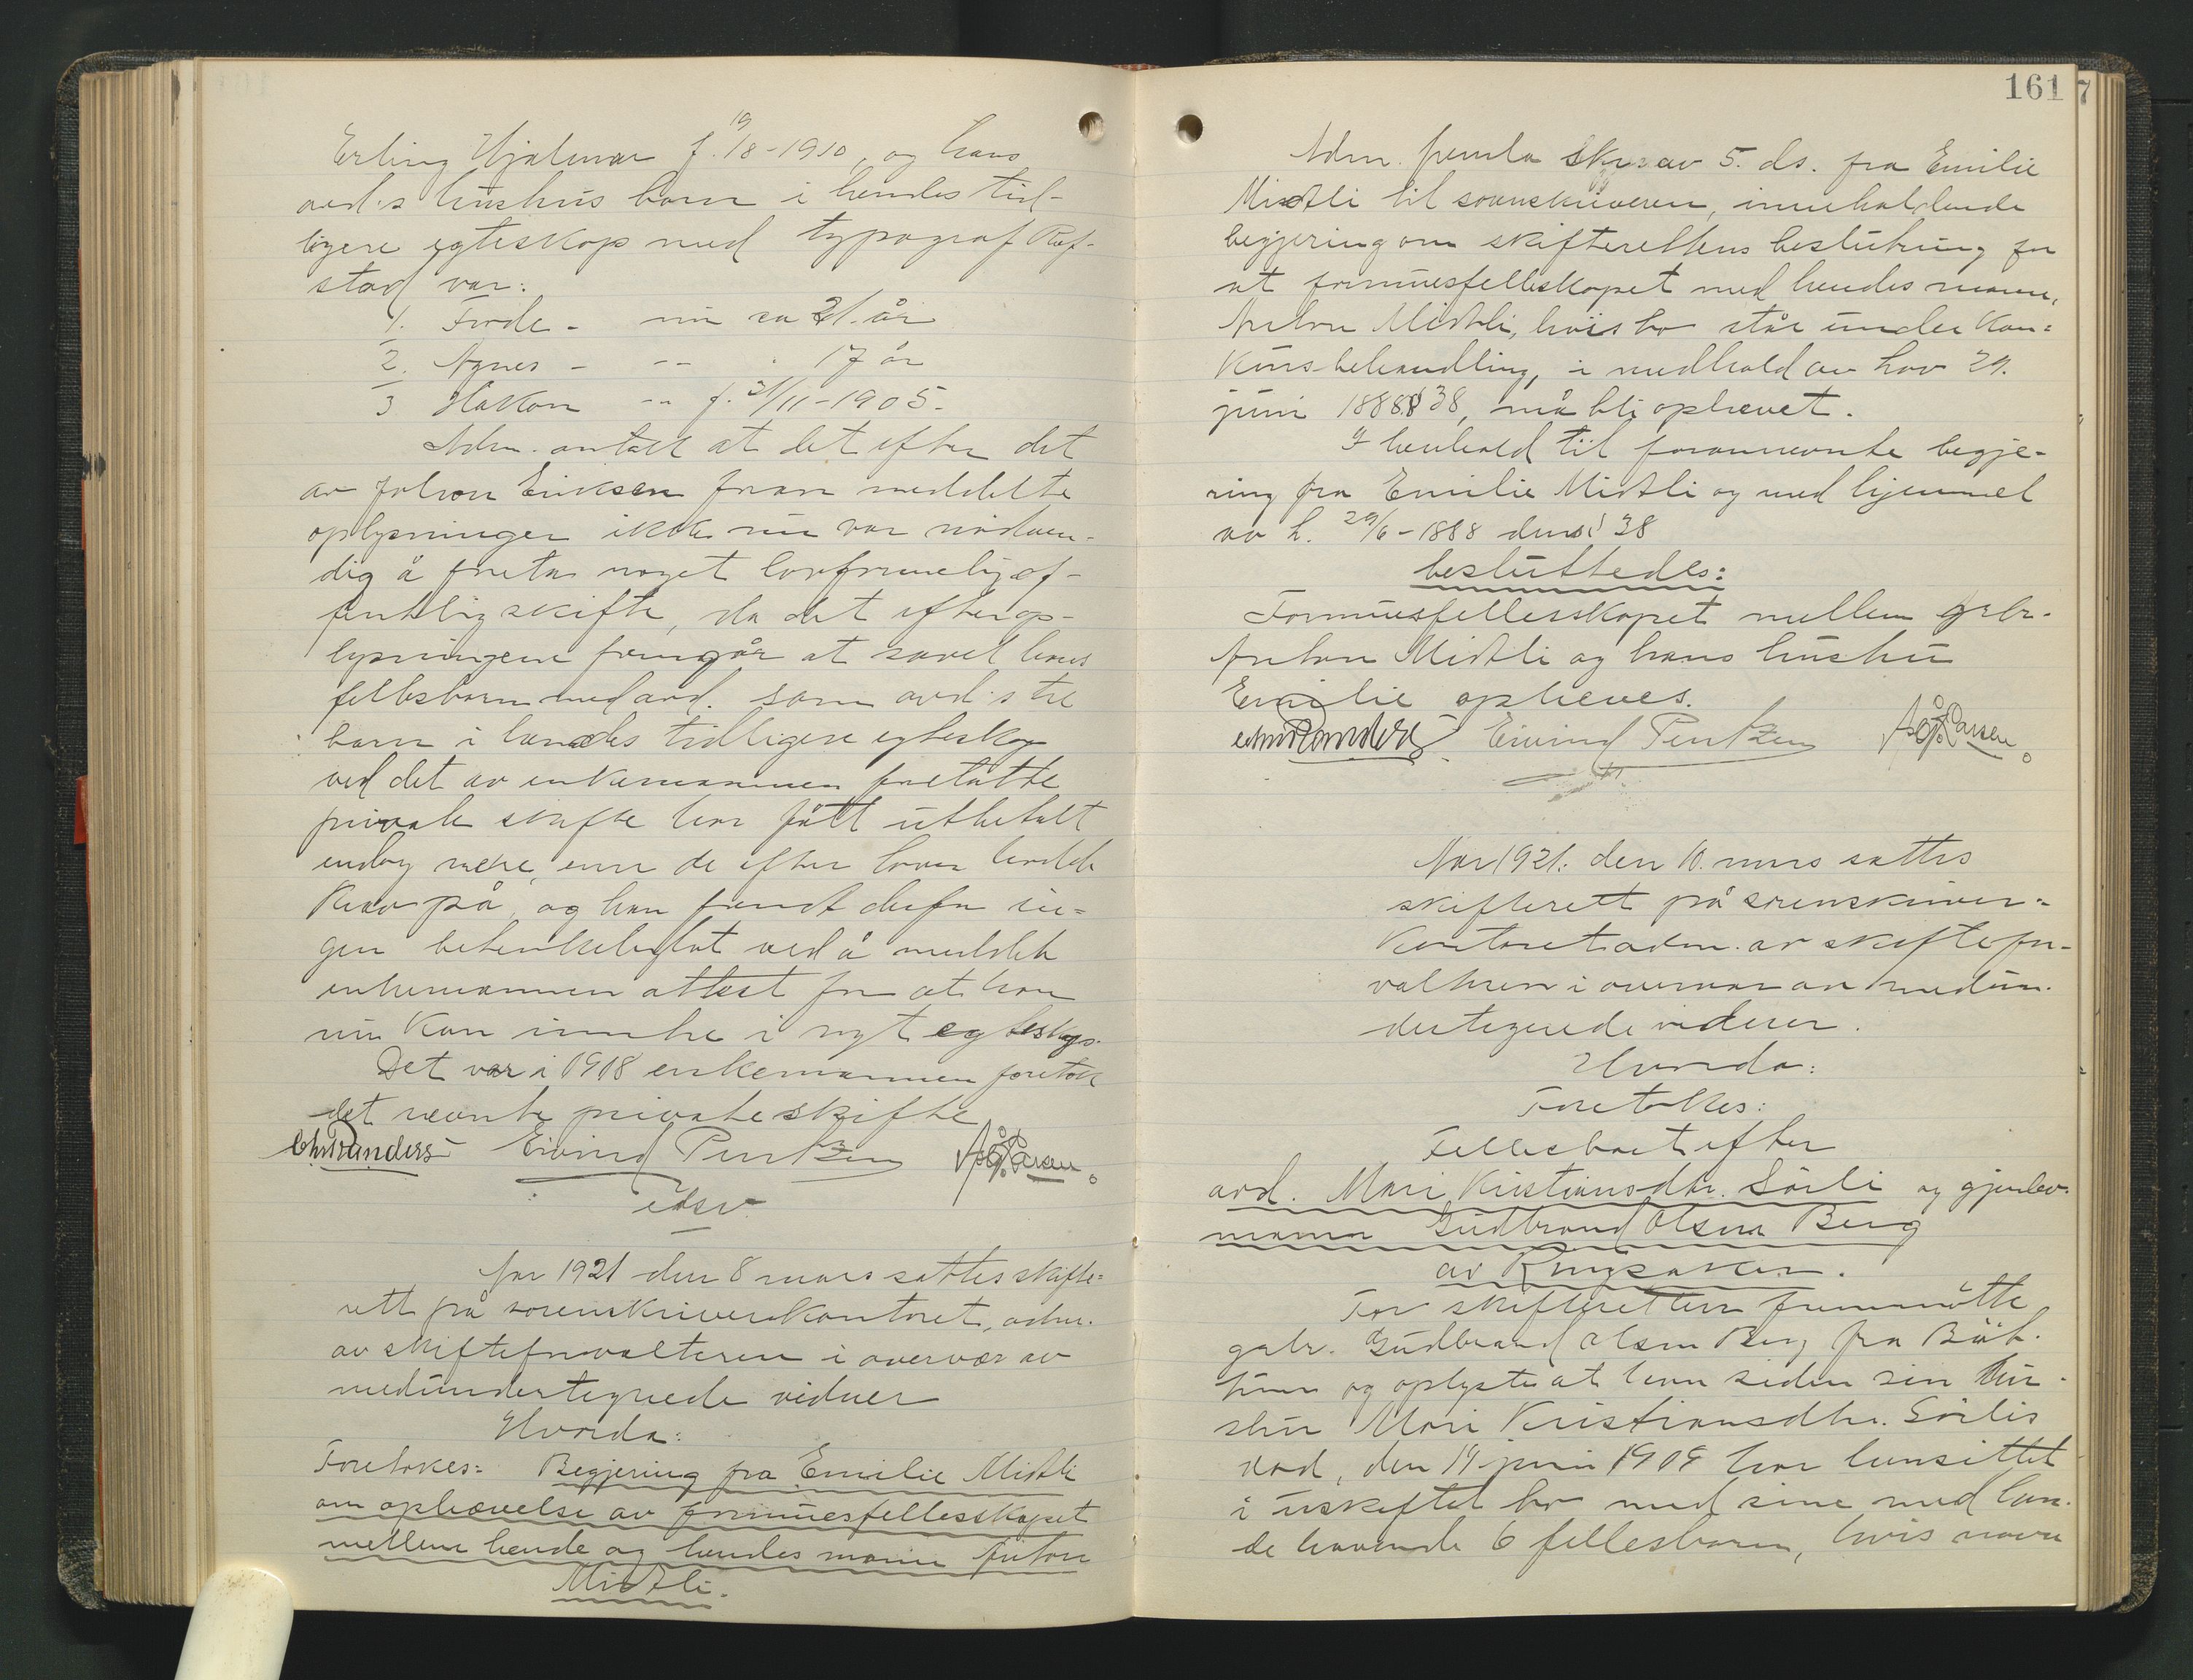 Erling Hjalmar f. 19/8-1910, og hans
avd.s hushus barn i hendes tid-
ligere egteskap med typograf Raf-
stad var:
1. Frode - nu ca 21 år
2. Agnes - -- " 17 år
3 Håkon -- f. 21/11-1905.
Adm. antok at det efter det
av Johan Eriksen foran meddelte
oplysninger ikke nu var nødven-
dig å foreta noget lovformelig of-
fentlig skifte, da det efter op-
lysningene fremgår at såvel hans
fellesbarn med avd. som avd.s tre
barn i hendes tidligere egteskap
ved det av enkemannen foretatte
private skifte har fått utbetalt
endog mere, enn de efter loven hadde
krav på, og han fandt derfor in-
gen betenkelighet ved å meddele
enkemannen attest for at han
nu kan inntre i nyt egteskap.
Det var i 1918 enkemannen foretok
det nevnte private skifte
Chr Randers Eivind Pentzen Aag. Larsen
Aar 1921 den 8 mars sattes skifte-
rett på sorenskriverkontoret, adm.
av skifteforvalteren i overvær av
medundertegnede vidner
Hvorda:
Foretokes: Begjering fra Emilie Mistli
om ophævelse av formuesfellesskapet
mellem hende og hendes mann Anton
Mistli.
161
7
Adm. fremla skr. av 5. ds. fra Emilie
Mistli til sorenskriveren, inneholdende
begjering om skifterettens beslutning for
at formuesfellesskapet med hendes mann,
Anton Mistli, hvis bo står under kon-
kursbehandling, i medhold av lov 29.
juni 1888 § 38, må bli ophevet.
I henhold til forannevnte begje-
ring fra Emilie Mistli og med hjemmel
av l. 29/6-1888 dens § 38
besluttedes:
Formuesfellesskapet mellem gbr.
Anton Mistli og hans hustru
Emilie opheves.
Chr Randers Eivind Pentzen Aag. Larsen
Aar 1921: den 10. mars sattes
skifterett på sorenskriver-
kontoret adm. av skiftefor-
valteren i overvær av medun-
dertegnede vidner.
Hvorda:
Foretokes:
Fellesboet efter
avd. Mari Kristiansdtr. Sørli og gjenlev.
mann Gudbrand Olsen Berg
av Ringsaker.
For skifteretten fremmøtte
gbr. Gudbrand Olsen Berg fra
og oplyste at han siden sin hu-
stru Mari Kristiansdtr. Sørlis
død, den 14 juni 1909 har hensittet
i uskiftet bo med sine med hen-
de havende 6 fellesbarn, hvis navn